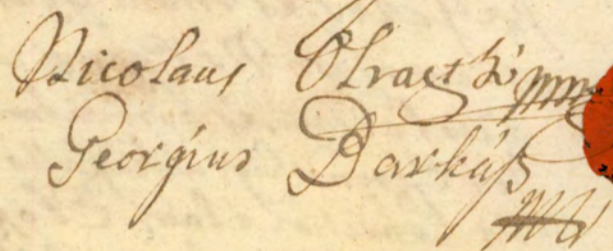 Nicolaus Olraetҟi mp
Georgius Darkuß mp